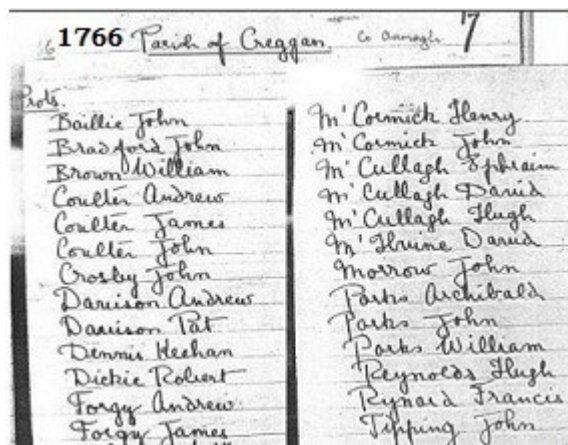 6 1766 Parish of Creggan Co Armagh 17
Prots.
Baillie John
Bradford John
Brown William
Coulter Andrew
Coulter James
Coulter John
Crosby John
Davison Andrew
Davison Pat
Dennis Heehan
Dickie Robert
Forgy Andrew
Forgy James
McCormick Henry
McCormick John
McCullagh Ephraim
McCullagh David
McCullagh Hugh
McIlvine David
Morrow John
Parks Archibald
Parks John
Parks William
Reynolds Hugh
Rynard Francis
Tipping John